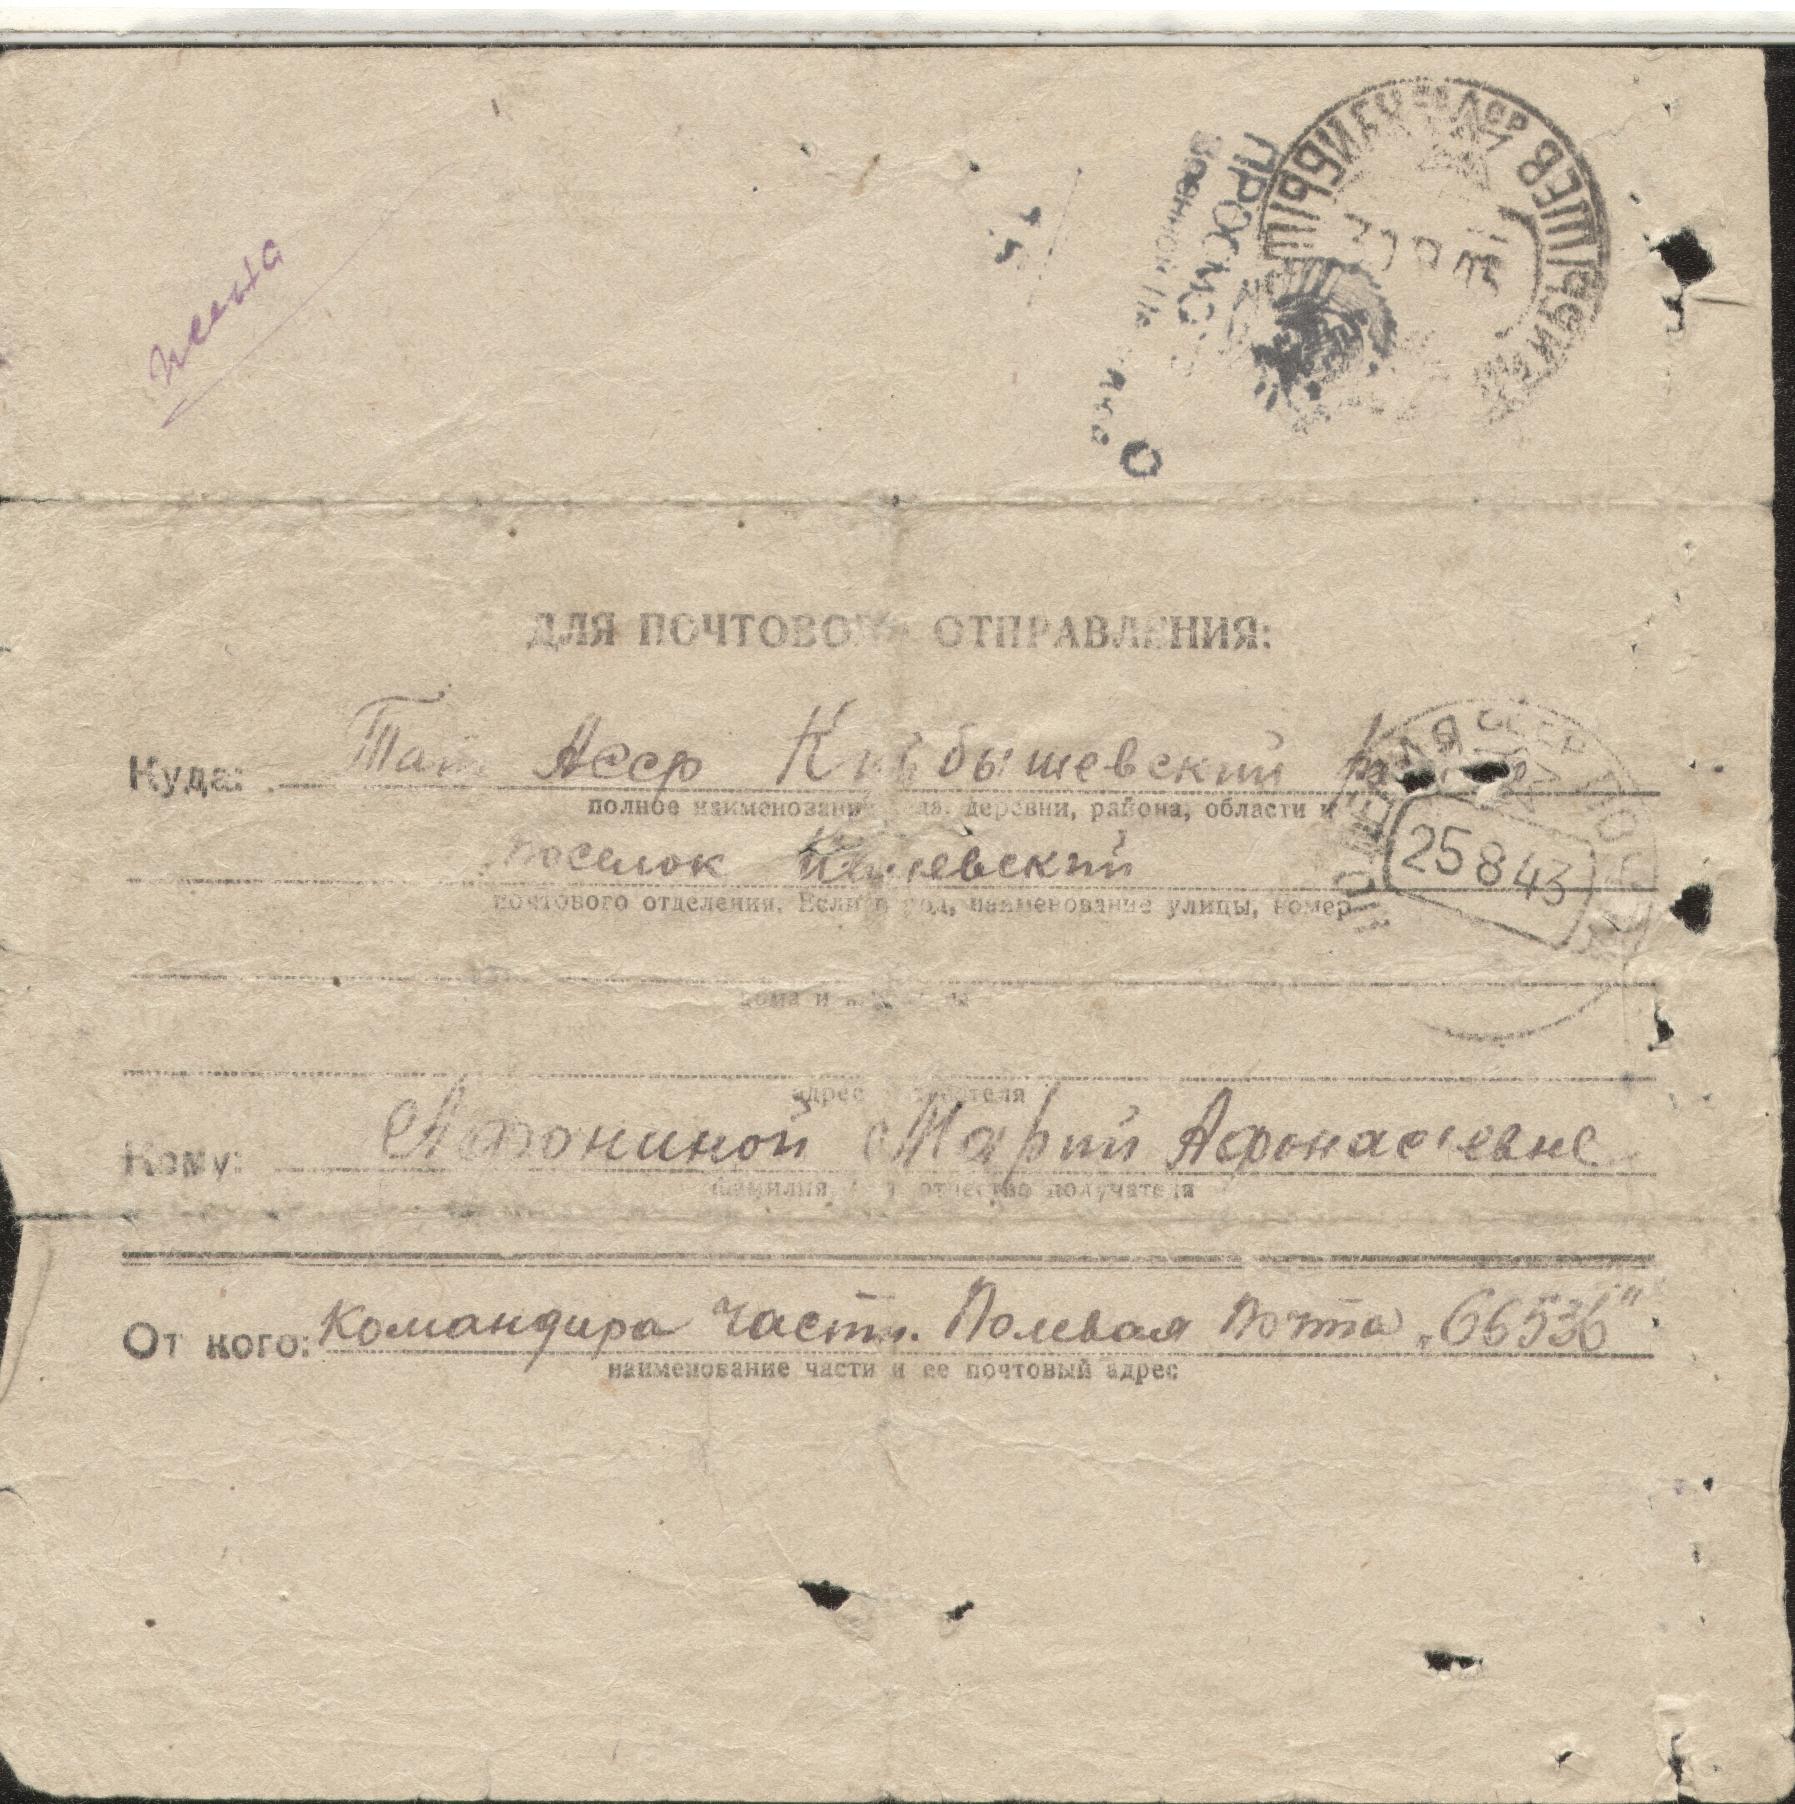 КУЙБЫШЕВ
ПРОСМО
Военной
ДЛЯ ПОЧТОВОГО ОТПРАВЛЕНИЯ:
Куда: Тат Асср Куйбышевский
полное наименование деревни, района, области и
поселок
почтового отделения. Если город, наименование улицы, номер
ПОЛЕВАЯ СССР ПОЧТА
25 8 43
дома и
адрес
Кому: Афониной Марии Афонасиевне
фамилия, отчество получателя
От кого: Командира Части. Полевая Почта „66536"
наименование части и ее почтовый адрес